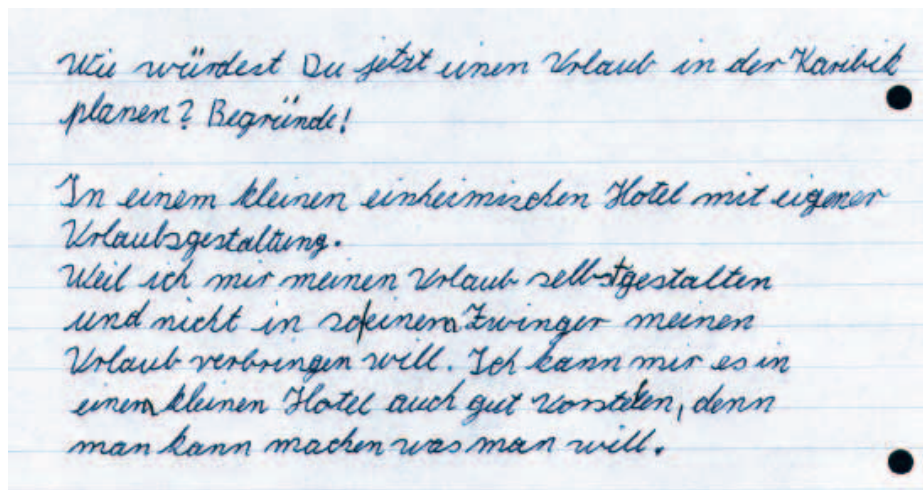 Wie würdest Du jetzt einen Urlaub in der Karibik
planen? Begründe!
In einem kleinen einheimischen Hotel mit eigener
Urlaubsgestaltung.
Weil ich mir meinen Urlaub selbstgestalten
und nicht in so einem Zwinger meinen
Urlaub verbringen will. Ich kann mir es in
einem kleinen Hotel auch gut vorstelen, denn
man kann machen was man will.